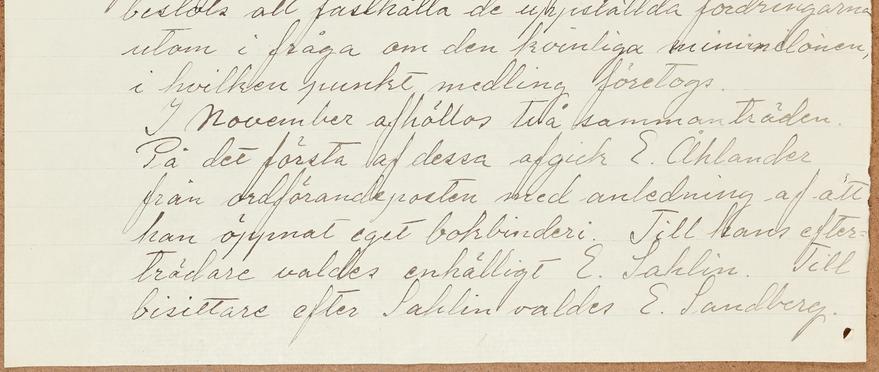 beslöts att fasthålla de uppställda fordringarna
utom i fråga om den kvinliga minimilönen,
i hvilken punkt medling företogs.
I November afhöllos två sammanträden.
På det första af dessa afgick E. Åhlander
från ordförandeposten med anledning af att
han öppnat eget bokbinderi. Till hans efter=
trädare valdes enhälligt E. Sahlin. Till
bisittare efter Sahlin valdes E. Sandberg.